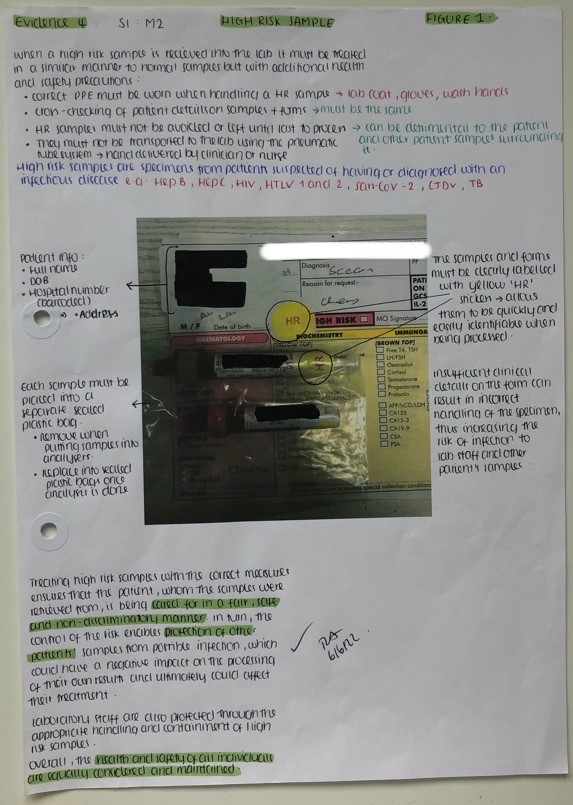 Evidence 4 S1 : M2 HIGH RISK SAMPLE FIGURE 1.
When a high risk sample is recieved into the lab it must be treated
in a similar manner to normal samples but with additional health
and safety precautions :
• correct PPE must be worn when handling a HR sample → lab coat, gloves, wash hands
• cross-checking of patient details on samples + forms → must be the same
• HR samples must not be avoided or left until last to process → can be detrimental to the patient
• They must not be transported to the lab using the pneumatic and other patient samples surrounding
tube system → hand delivered by clinician or nurse it.
High risk samples are specimens from patients suspected of having or diagnosed with an
infectious disease e.g. Hep B, Hep C, HIV, HTLV 1 and 2, Sars-CoV-2, CJDv, TB
Patient info :
• Full name
• DOB
• Hospital number
(barcoded)
• Address
Each sample must be
placed into a
separate sealed
plastic bag.
• remove when
putting samples into
analysers.
• Replace into sealed
plastic bags once
analysis is done
Diagnosis
Reason for request:
PATI
ON
GCS
IL-2
HR
IGH RISK
MO Signature
M / F Date of birth
HAEMATOLOGY
BIOCHEMISTRY
IMMUNOA
TOP)
HR
(BROWN TOP)
Free T4, TSH
LH/FSH
Oestradiol
Cortisol
Testosterone
Progesterone
Prolactin
AFP/HCG/LDH
CA125
CA15-3
CA19-9
CEA
PSA
special collection conditions
The samples and forms
must be clearly labelled
with yellow 'HR'
sticker → allows
them to be quickly and
easily identifiable when
being processed.
Insufficient clinical
details on the form can
result in incorrect
handling of the specimen,
thus increasing the
risk of infection to
lab staff and other
patient's samples.
Treating high risk samples with the correct measures
ensures that the patient, whom the samples were
retrieved from, is being cared for in a fair, safe
and non-discriminatory manner. In turn, the
control of the risk enables protection of other
patients' samples from possible infection, which
could have a negative impact on the processing
of their own results and ultimately could affect
their treatment.
Laboratory staff are also protected through the
appropriate handling and containment of high
risk samples.
Overall, the health and safety of all individuals
are equally considered and maintained.
6/6/22